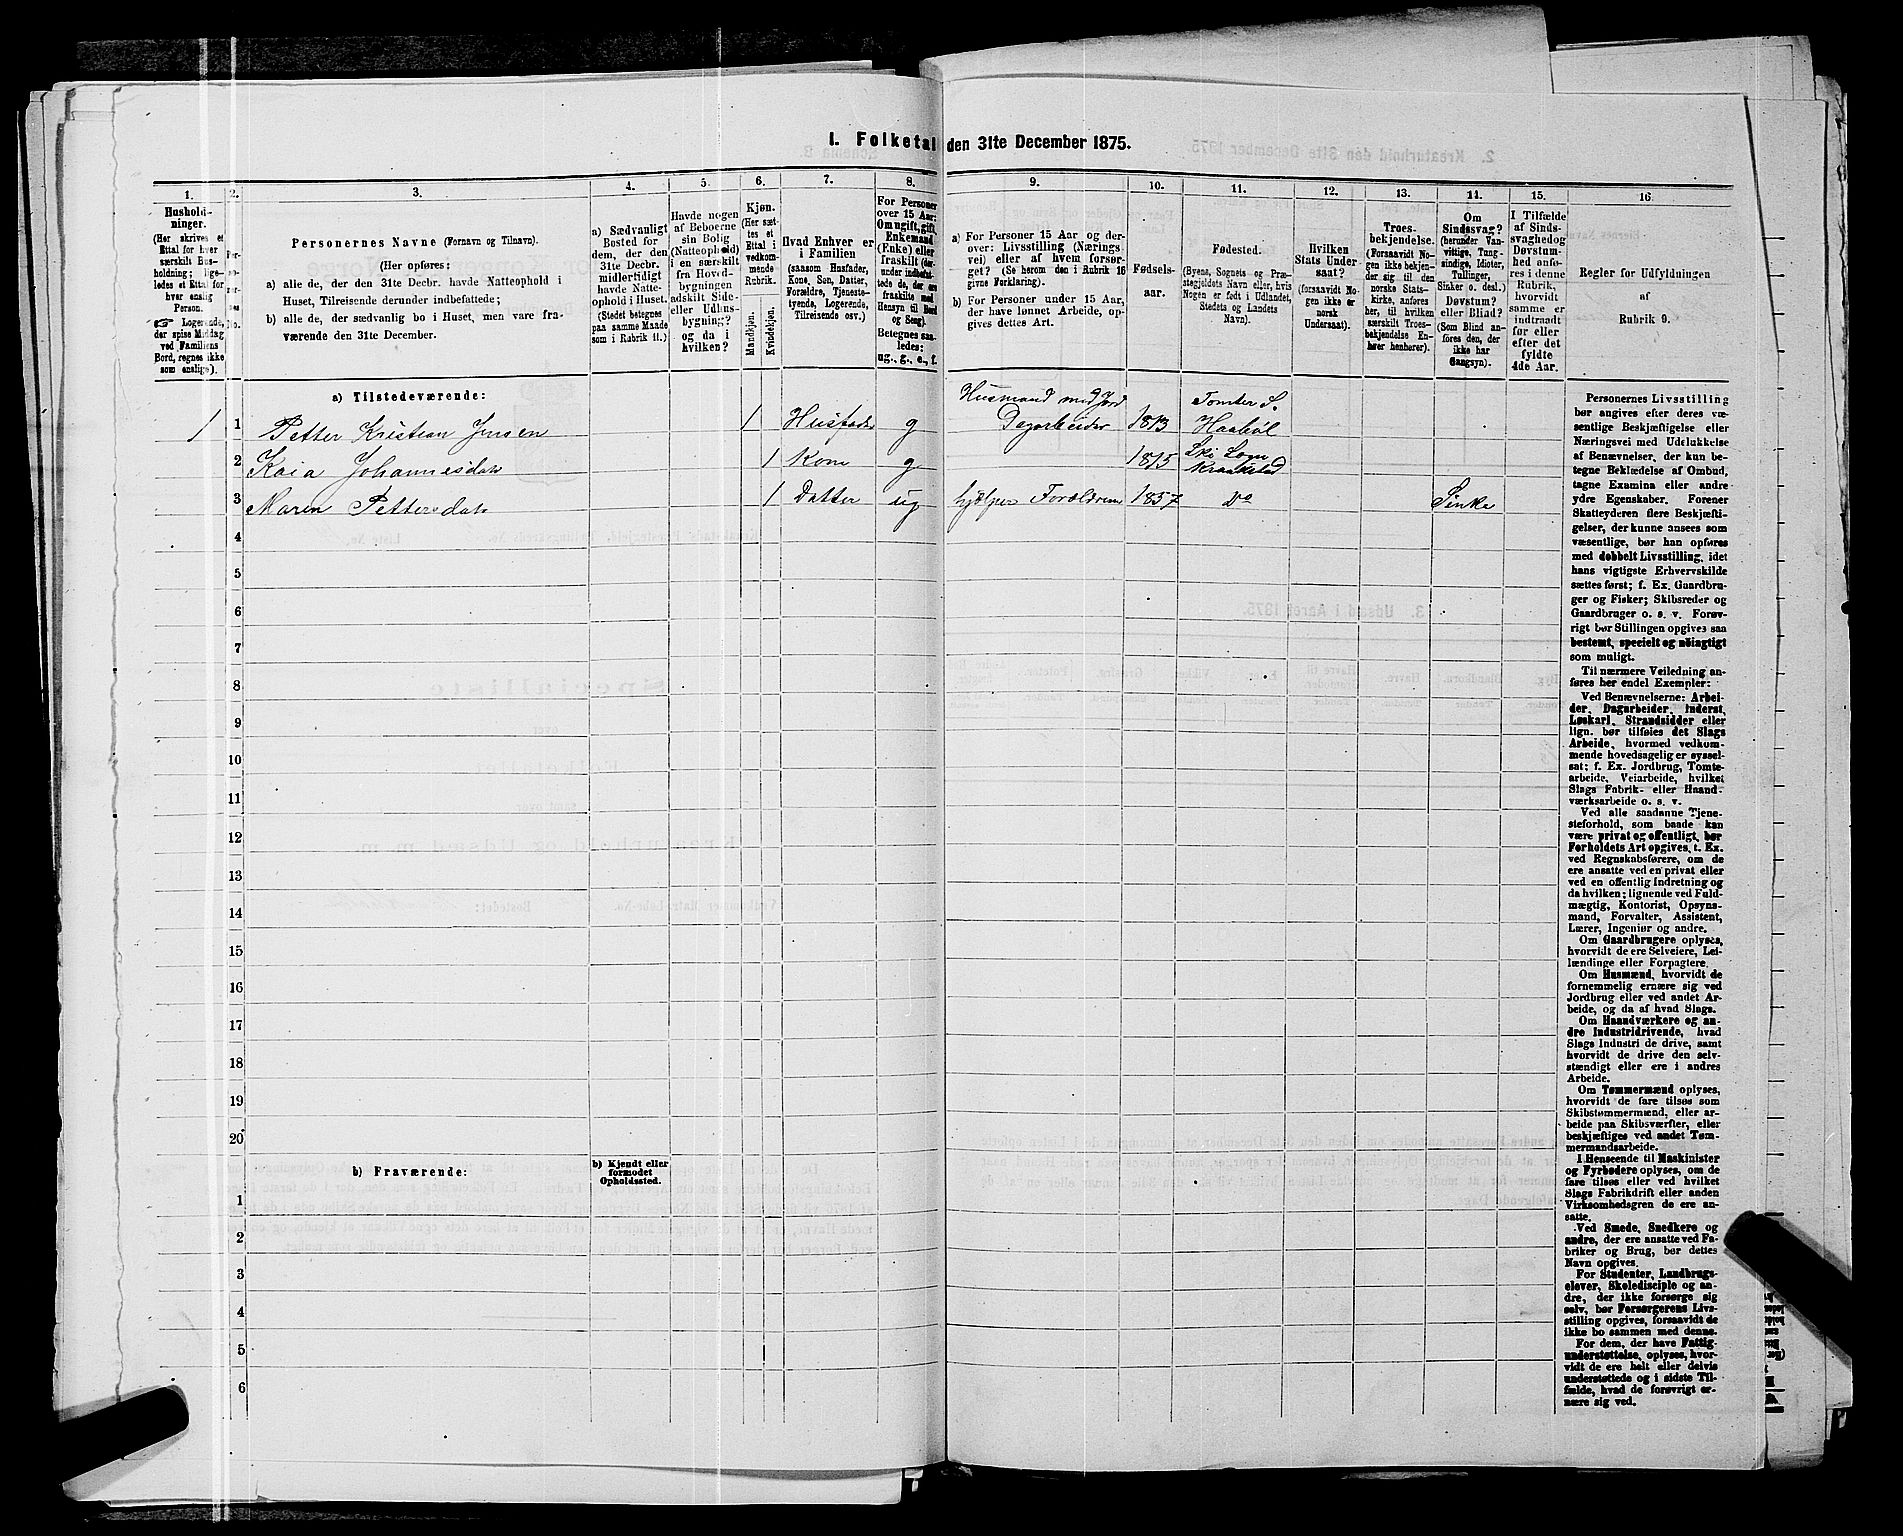 I. Folketal den 31te December 1875.
1.
2.
3.
4.
5.
6.
7.
8.
9.
10.
11.
12.
13.
14.
15.
16.
Hushold-
ninger.
(Her skrives et
Ettal for hver
særskilt Hus-
holdning; lige-
ledes et Ettal for
hver enslig
Person.
☞ Logerende,
der spise Middag
ved Familiens
Bord, regnes ikke
som enslige).
Per-
so-
ner-
nes
No.
Personernes Navne (Fornavn og Tilnavn).
(Her opføres:
a) alle de, der den 31te Decbr. havde Natteophold i
Huset, Tilreisende derunder indbefattede;
b) alle de, der sædvanlig bo i Huset, men vare fra-
værende den 31te December.
a) Sædvanligt
Bosted for
dem, der den
31te Decbr.
midlertidigt
havde Natte-
ophold i Huset.
(Stedet betegnes
paa samme Maade
som i Rubrik 11.)
Havde nogen
af Beboerne
sin Bolig
(Natteophold)
i en særskilt
fra Hoved-
bygningen
adskilt Side-
eller Udhus-
bygning?
og da i
hvilken?
Kjøn.
(Her sæt-
tes et
Ettal i
vedkom-
mende
Rubrik.
Mandkjøn.
Kvindekjøn.
Hvad Enhver er
i Familien
(saasom Husfader,
Kone, Søn, Datter,
Forældre, Tjeneste-
tyende, Logerende,
Tilreisende osv.)
For Personer
over 15 Aar:
Om ugift, gift,
Enkemand
(Enke) eller
fraskilt (der-
under indbefat-
tede de, der ere
fraskilte med
Hensyn til Bord
og Seng).
Betegnes saa-
ledes:
ug., g., e., f.
a) For Personer 15 Aar og der-
over: Livsstilling (Nærings-
vei) eller af hvem forsør-
get? (Se herom den i Rubrik 16
givne Forklaring).
b) For Personer under 15 Aar,
der have lønnet Arbeide, op-
gives dettes Art.
Fødsels-
aar.
Fødested.
(Byens, Sognets og Præ-
stegjeldets Navn eller, hvis
Nogen er født i Udlandet,
Stedets og Landets
Navn).
Hvilken
Stats Under-
saat?
(forsaavidt No-
gen ikke er
norsk
Undersaat).
Troes-
bekjendelse.
(Forsaavidt No-
gen ikke bekjen-
der sig til den
norske Stats-
kirke, anføres
her, til hvilken
særskilt Troes-
bekjendelse En-
hver henhører).
Om
Sindssvag?
(herunder Van-
vittige, Tung-
sindige, Idioter,
Tullinger,
Sinker o. desl.)
Døvstum?
eller Blind?
(Som Blind an-
føres den, der
ikke har
Gangsyn).
I Tilfælde
af Sinds-
svaghedog
Døvstum-
hed anfø-
res i denne
Rubrik,
hvorvidt
samme er
indtraadt
før eller
efter det
fyldte
4de Aar.
Regler for Udfyldningen
af
Rubrik 9.
a) Tilstedeværende:
Husmand med Jord Tomter S.
1 1 Petter Kristian Jensen 1 Husfader g Dagarbeider 1813 Haabøl
2 Kaia Johannesdatr 1 Kone g 1815 Ski Sogn Kraakstad
3 Maren Pettersdatr 1 Datter ug hjelper Forældrene 1857 Do Sinke
4
5
6
7
8
9
10
11
12
13
14
15
16
17
18
19
20
b) Fraværende:
b) Kjendt eller
formodet
Opholdssted.
1
2
3
4
5
6
Personernes Livsstilling
bør angives efter deres væ-
sentlige Beskjæftigelse eller
Næringsvei med Udelukkelse
af Benævnelser, der kun be-
tegne Beklædelse af Ombud,
tagne Examina eller andre
ydre Egenskaber. Forener
Skatteyderen flere Beskjæfti-
gelser, der kunne ansees som
væsentlige, bør han opføres
med dobbelt Livsstilling, idet
hans vigtigste Erhvervskilde
sættes først; f. Ex. Gaardbru-
ger og Fisker; Skibsreder og
Gaardbruger o. s. v. Forøv-
rigt bør Stillingen opgives saa
bestemt, specielt og nöiagtigt
som muligt.
Til nærmere Veiledning an-
føres her endel Exempler:
Ved Benævnelserne: Arbei-
der, Dagarbeider, Inderst,
Løskarl, Strandsidder eller
lign. bør tilføies det Slags
Arbeide, hvormed vedkom-
mende hovedsagelig er syssel-
sat; f. Ex. Jordbrug, Tomte-
arbeide, Veiarbeide, hvilket
Slags Fabrik- eller Haand-
værksarbeide o. s. v.
Ved alle saadanne Tjene-
steforhold, som baade kan
være privat og offentligt, bør
Forholdets Art opgives, t. Ex.
ved Regnskabsførere, om de
ere ansatte ved en privat eller
ved en offentlig Indretning og
da hvilken; lignende ved Fuld-
mægtig, Kontorist, Opsyns-
mand, Forvalter, Assistent,
Lærer, Ingeniør og andre.
Om Gaardbrugere oplyses,
hvorvidt de ere Selveiere, Lei-
lændinge eller Forpagtere.
Om Husmænd, hvorvidt de
fornemmelig ernære sig ved
Jordbrug eller ved andet Ar-
beide, og da af hvad Slags.
Om Haandværkere og an-
dre Industridrivende, hvad
Slags Industri de drive, samt
hvorvidt de drive den selv-
stændigt eller ere i andres
Arbeide.
Om Tømmermænd oplyses,
hvorvidt de fare tilsøs som
Skibstømmermænd, eller ar-
beide paa Skibsværfter, eller
beskjæftiges ved andet Tøm-
mermandsarbeide.
I Henseende til Maskinister
og Fyrbødere oplyses, om de
fare tilsøs eller ved hvilket
Slags Fabrikdrift eller anden
Virksomhedsgren de ere an-
satte.
Ved Smede, Snedkere og
andre, der ere ansatte ved Fa-
briker og Brug, bør dettes
Navn opgives.
For Studenter, Landbrugs-
elever, Skoledisciple og an-
dre, der ikke forsørge sig
selv, bør Forsørgerens Livs-
stilling opgives, forsaavidt de
ikke bo sammen med denne.
For dem, der have Fattig-
understøttelse, oplyses, hvor-
vidt de ere helt eller delvis
understøttede og i sidste Til-
fælde, hvad de forøvrigt er-
nære sig ved.